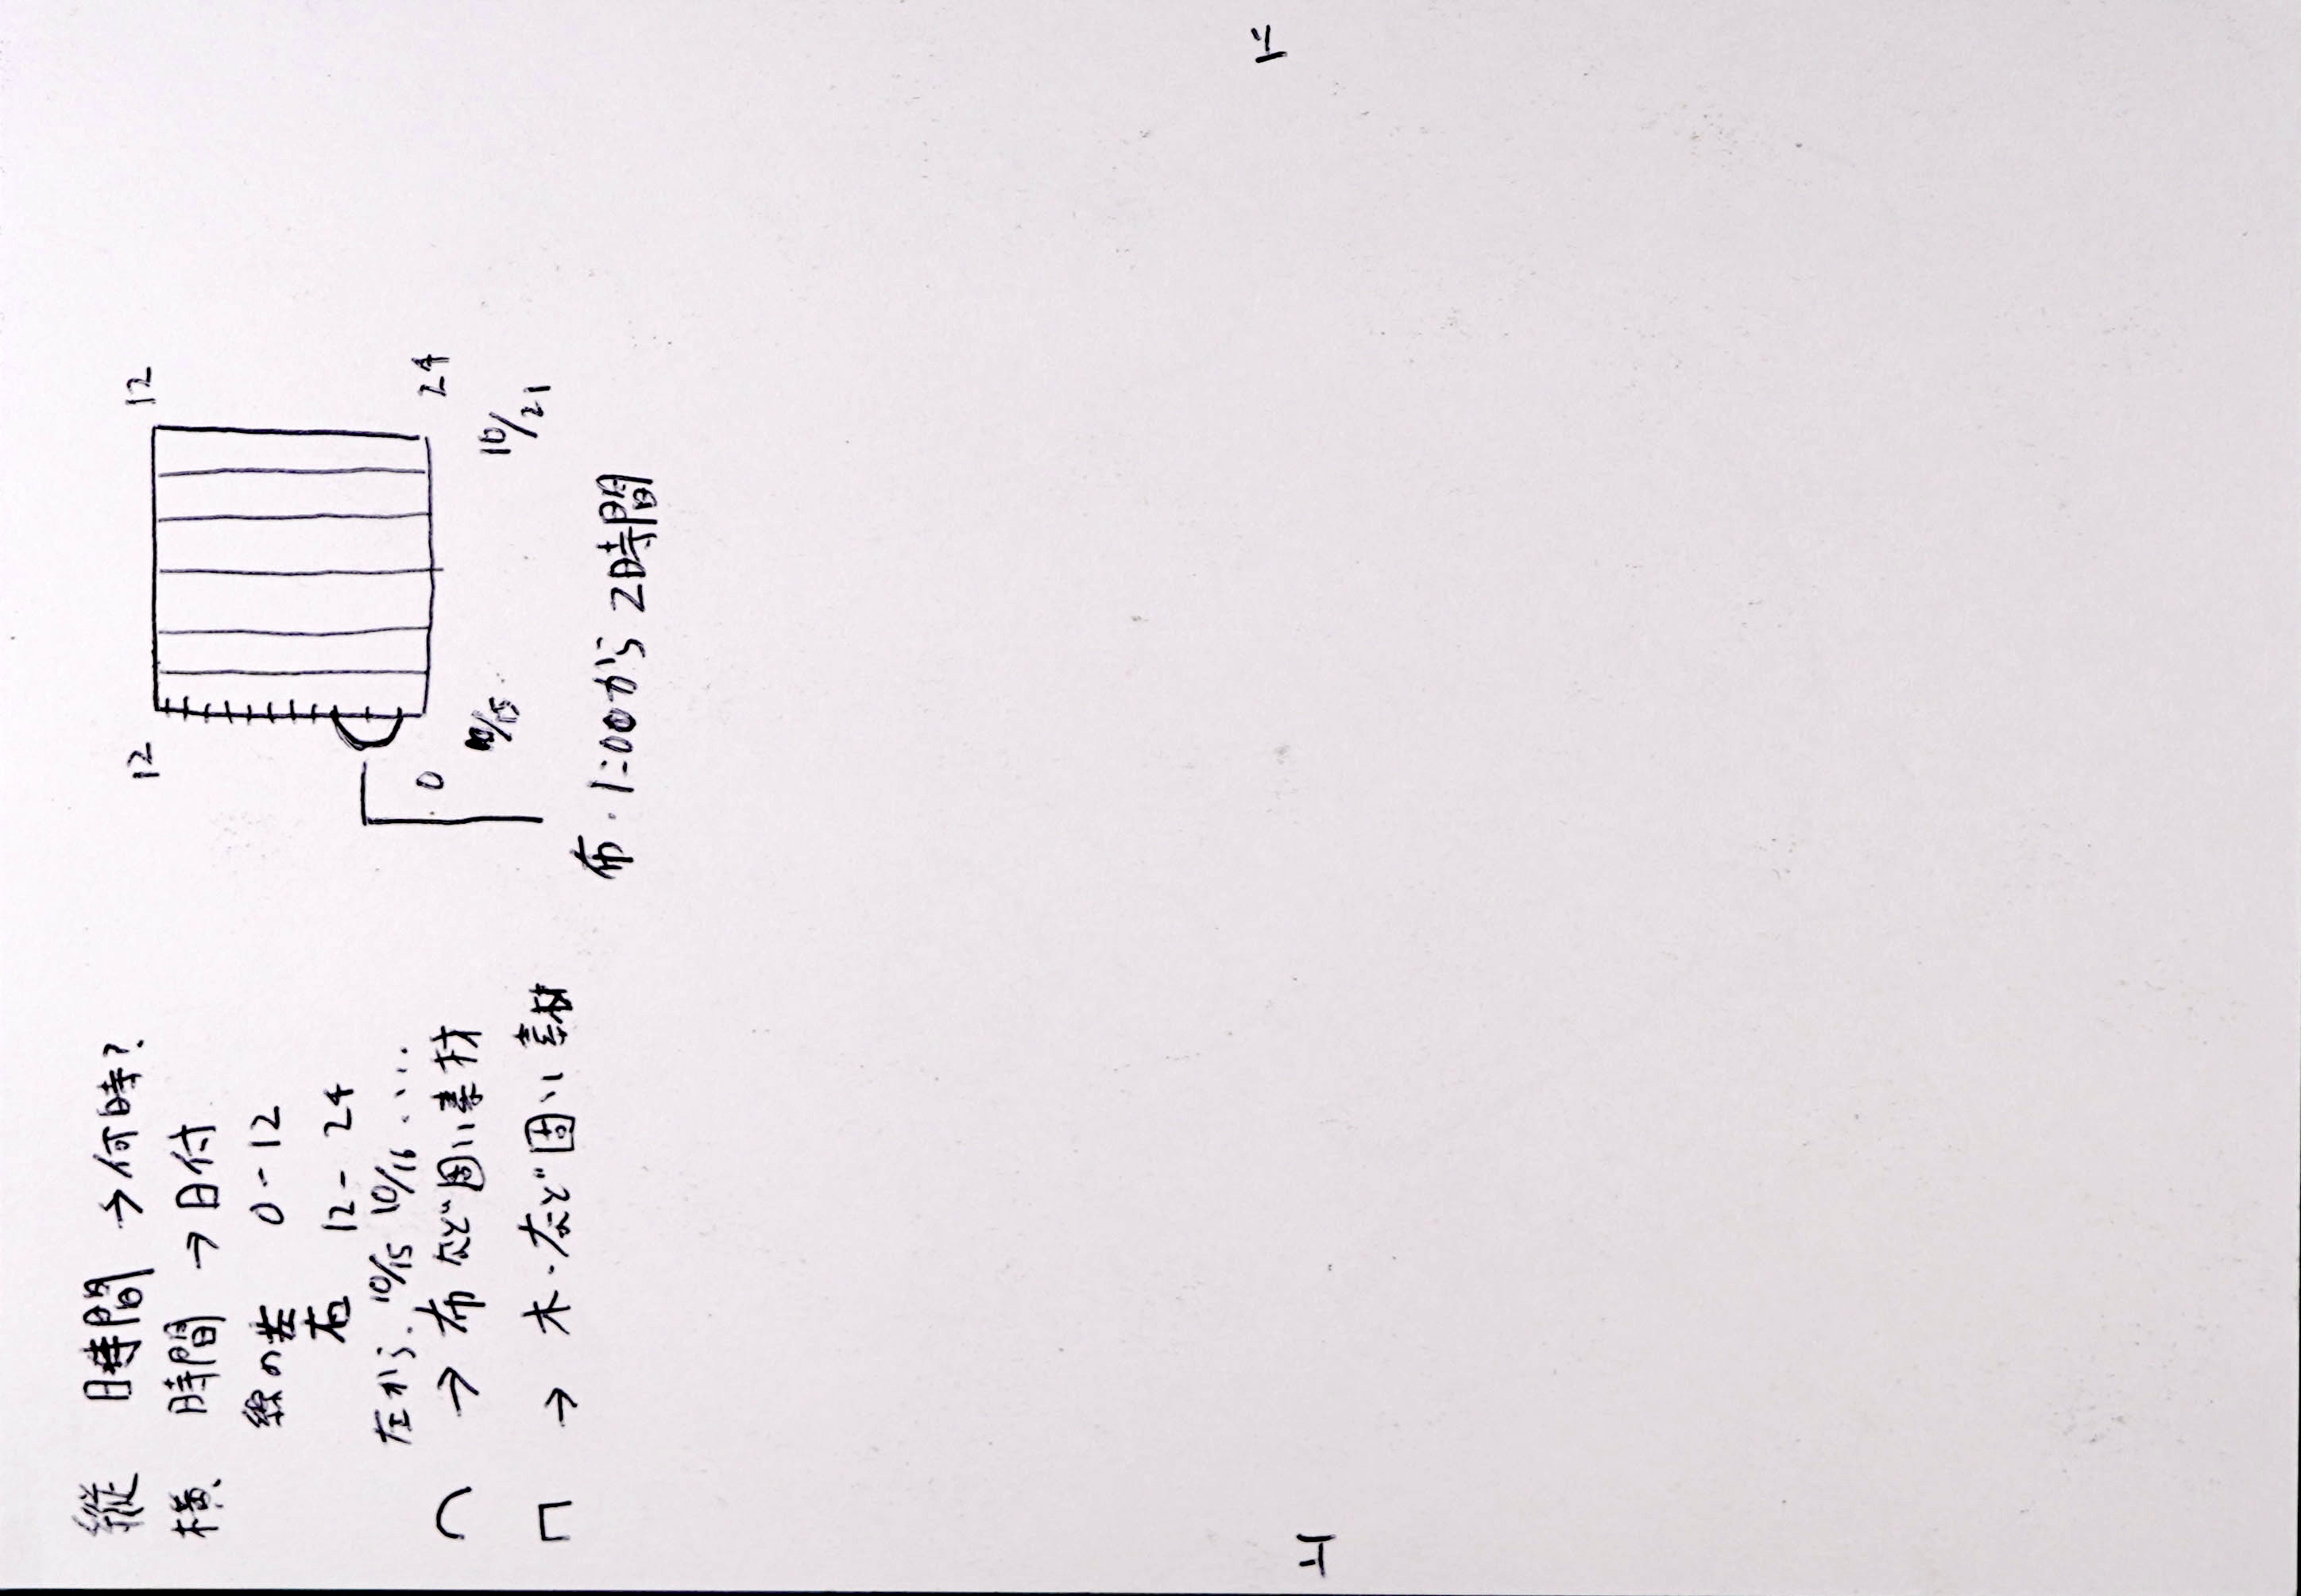 縦 時間 →何時?
横 時間 →日付
線の差 0-12
右 12-24
左から 10/15 10/16 ....
→ 布など固い素材
→ 木・など固い素材
12 12
0 24
10/15 10/21
布・1:00から2時間